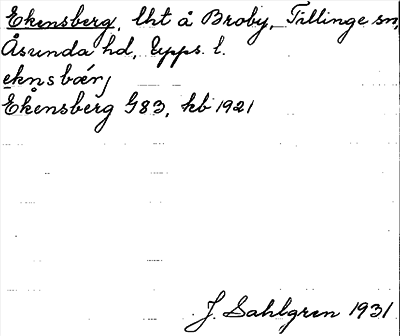 Ekensberg, lht å Broby, Tillinge sn,
Åsunda hd, Upps. l.
eknsbærj
Ekensberg G83, kb 1921
J. Sahlgren 1931